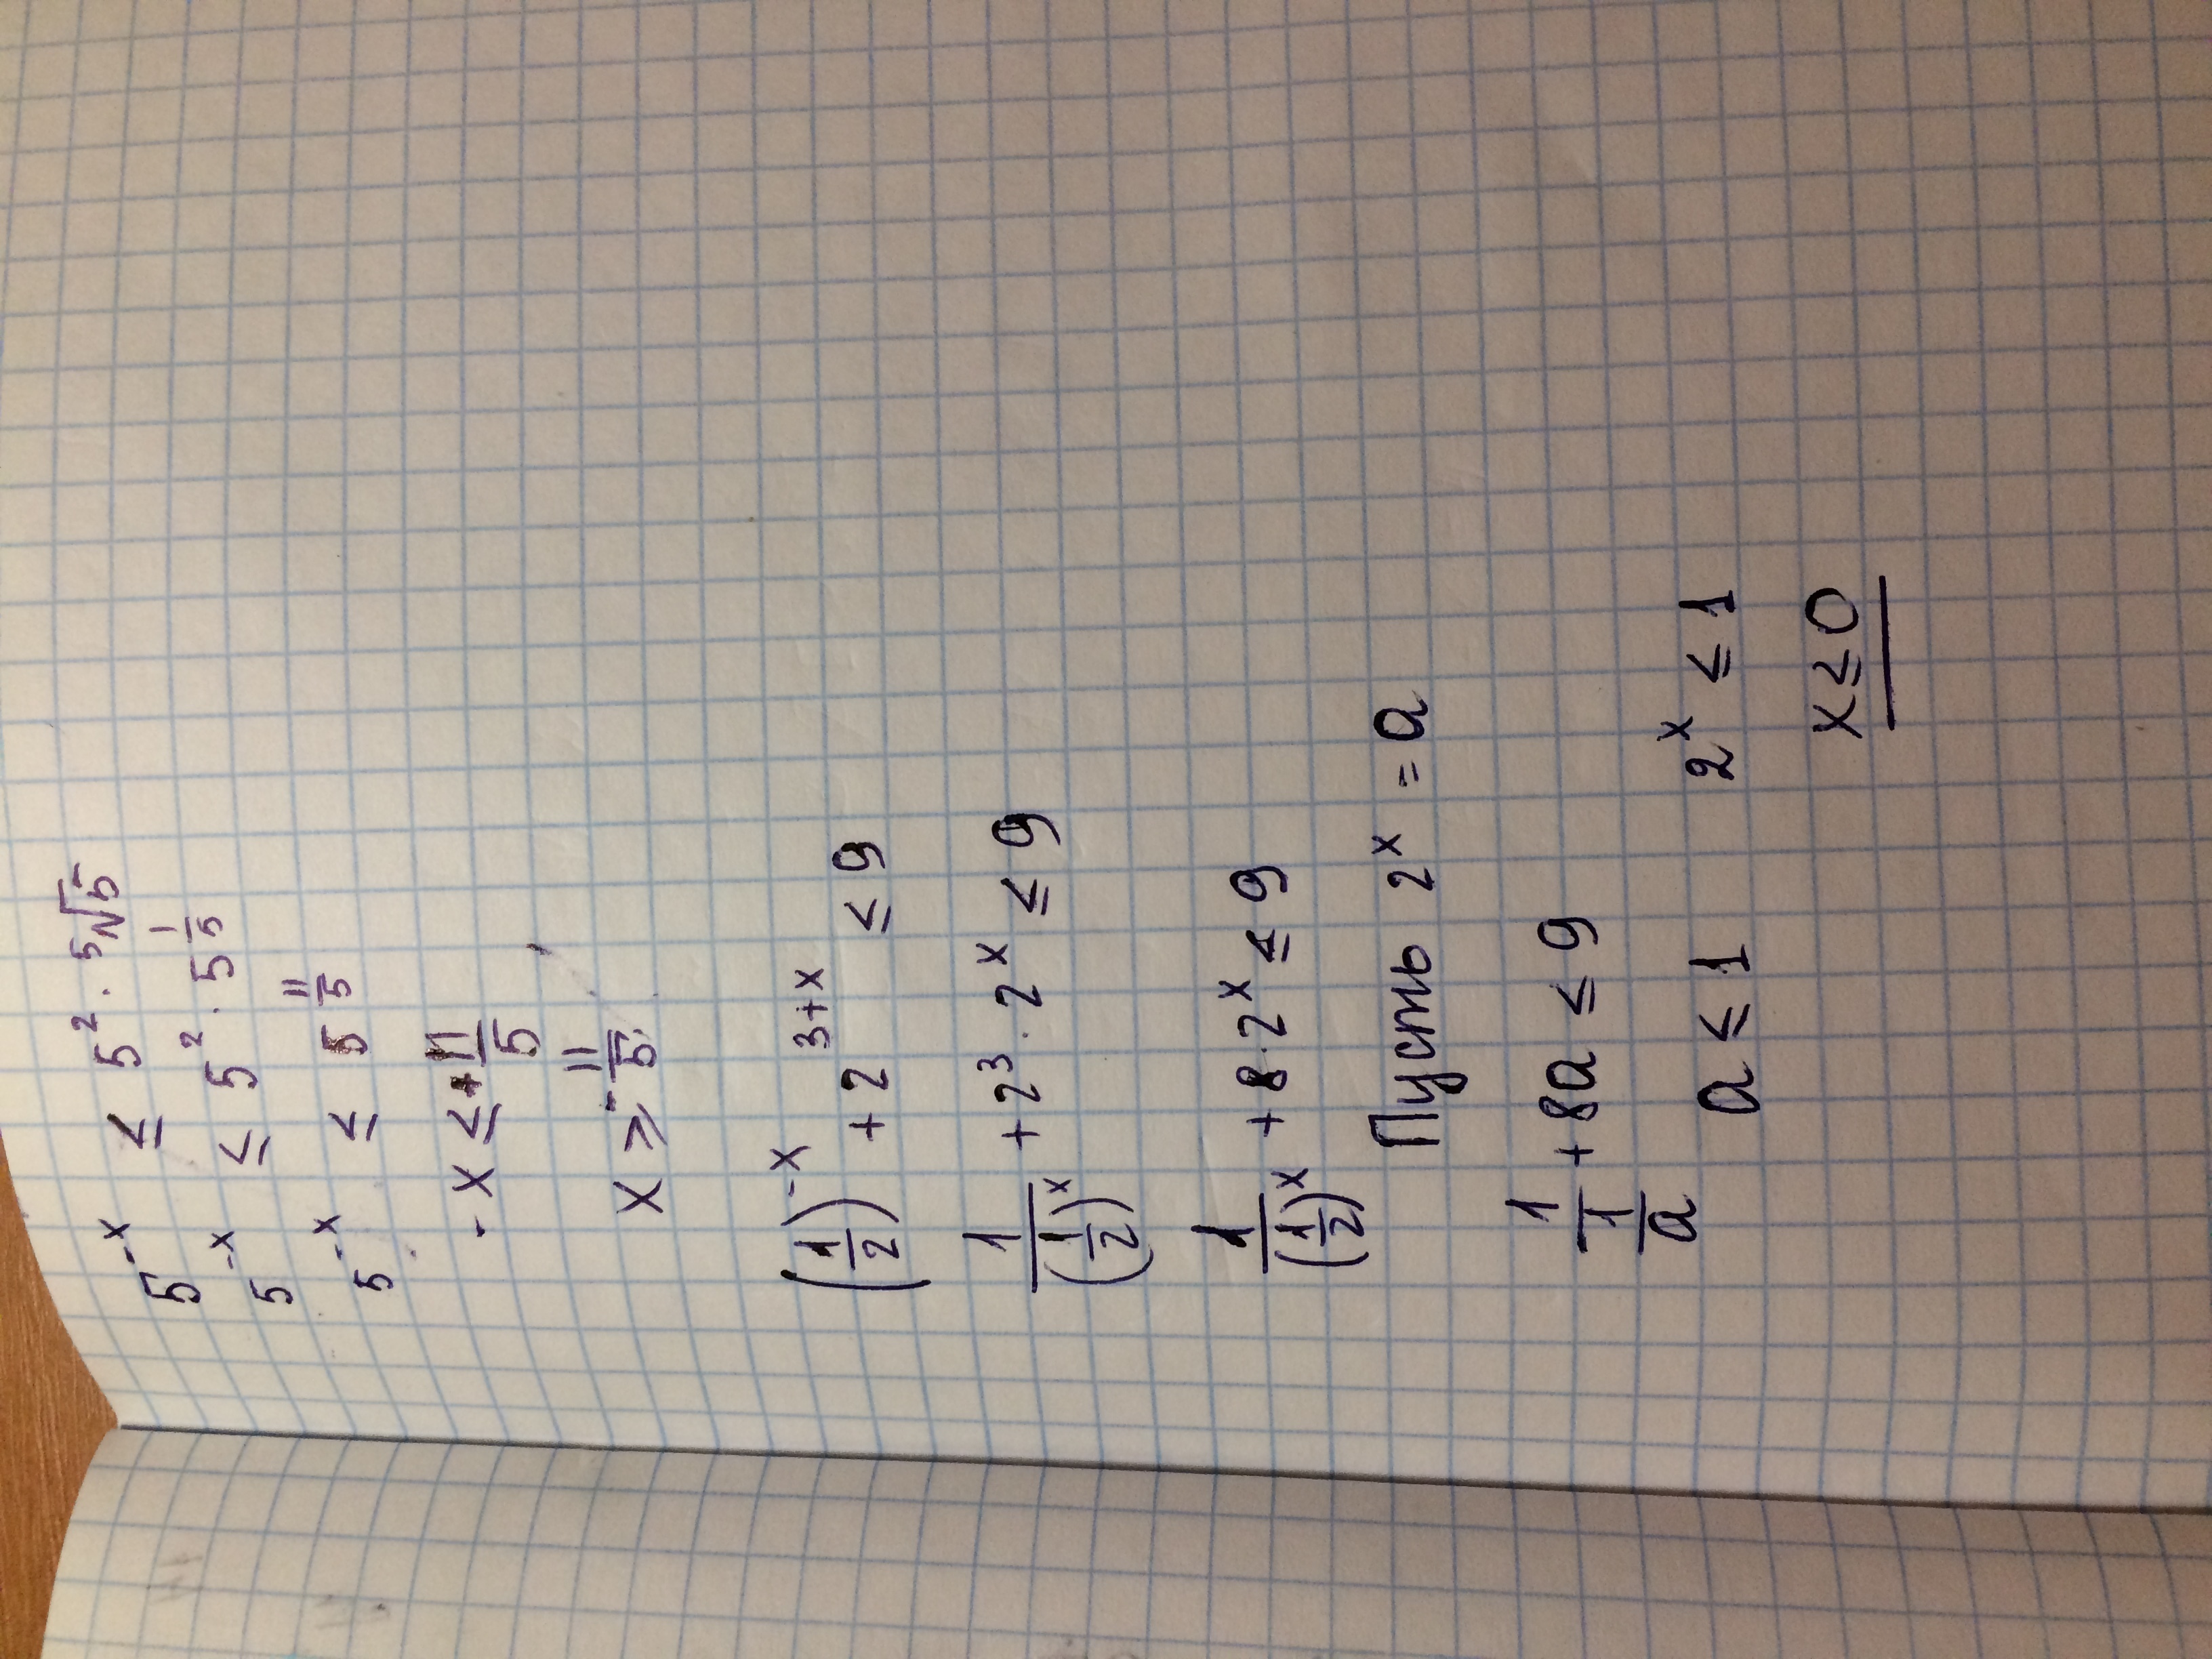 5^{-x} ≤ 5^2 · ⁵√5
5^{-x} ≤ 5^2 · 5^{1/5}
5^{-x} ≤ 5^{11/5}
-x ≤ +11/5
x ≥ -11/5
(1/2)^{-x} + 2^{3+x} ≤ 9
1/(1/2)^x + 2^3 · 2^x ≤ 9
1/(1/2)^x + 8 · 2^x ≤ 9
Пусть 2^x = a
1/(1/a) + 8a ≤ 9
a ≤ 1 2^x ≤ 1
x ≤ 0